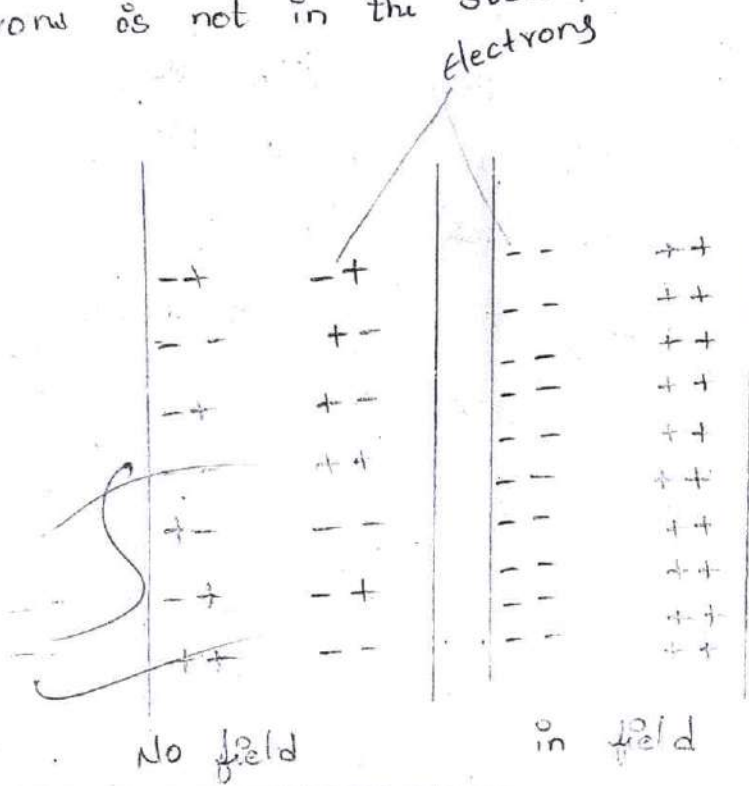 is not in the
Electrons
-+ -+ -- ++
-- +- -- ++
-+ +- -- ++
++ -- ++
+- -- -- ++
-+ -+ -- ++
++ -- -- ++
-- ++
-- ++
-- ++
No field in field